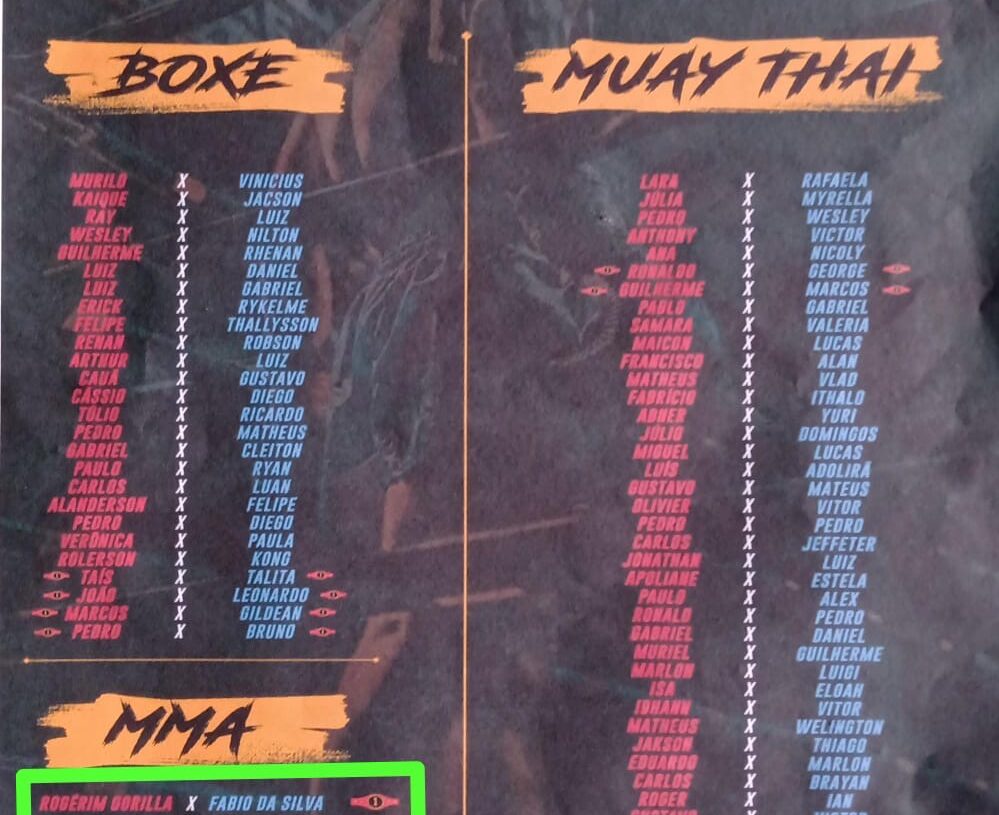 BOXE
MURILO X VINICIUS
KAIQUE X JACSON
RAY X LUIZ
WESLEY X NILTON
GUILHERME X RHENAN
LUIZ X DANIEL
LUIZ X GABRIEL
ERICK X RYKELME
FELIPE X THALLYSSON
RENAN X ROBSON
ARTHUR X LUIZ
CAUÃ X GUSTAVO
CÁSSIO X DIEGO
TÚLIO X RICARDO
PEDRO X MATHEUS
GABRIEL X CLEITON
PAULO X RYAN
CARLOS X LUAN
ALANDERSON X FELIPE
PEDRO X DIEGO
VERÔNICA X PAULA
ROLERSON X KONG
TAÍS X TALITA
JOÃO X LEONARDO
MARCOS X GILDEAN
PEDRO X BRUNO
MMA
ROGÉRIM GORILLA X FABIO DA SILVA
MUAY THAI
LARA X RAFAELA
JÚLIA X MYRELLA
PEDRO X WESLEY
ANTHONY X VICTOR
ANA X NICOLY
RONALDO X GEORGE
GUILHERME X MARCOS
PABLO X GABRIEL
SAMARA X VALERIA
MAICON X LUCAS
FRANCISCO X ALAN
MATHEUS X VLAD
FABRÍCIO X ITHALO
ABNER X YURI
JÚLIO X DOMINGOS
MIGUEL X LUCAS
LUÍS X ADOLIRÃ
GUSTAVO X MATEUS
OLIVIER X VITOR
PEDRO X PEDRO
CARLOS X JEFFETER
JONATHAN X LUIZ
APOLIANE X ESTELA
PAULO X ALEX
RONALD X PEDRO
GABRIEL X DANIEL
MURIEL X GUILHERME
MARLON X LUIGI
ISA X ELOAH
IOHANN X VITOR
MATHEUS X WELINGTON
JAKSON X THIAGO
EDUARDO X MARLON
CARLOS X BRAYAN
ROGER X IAN